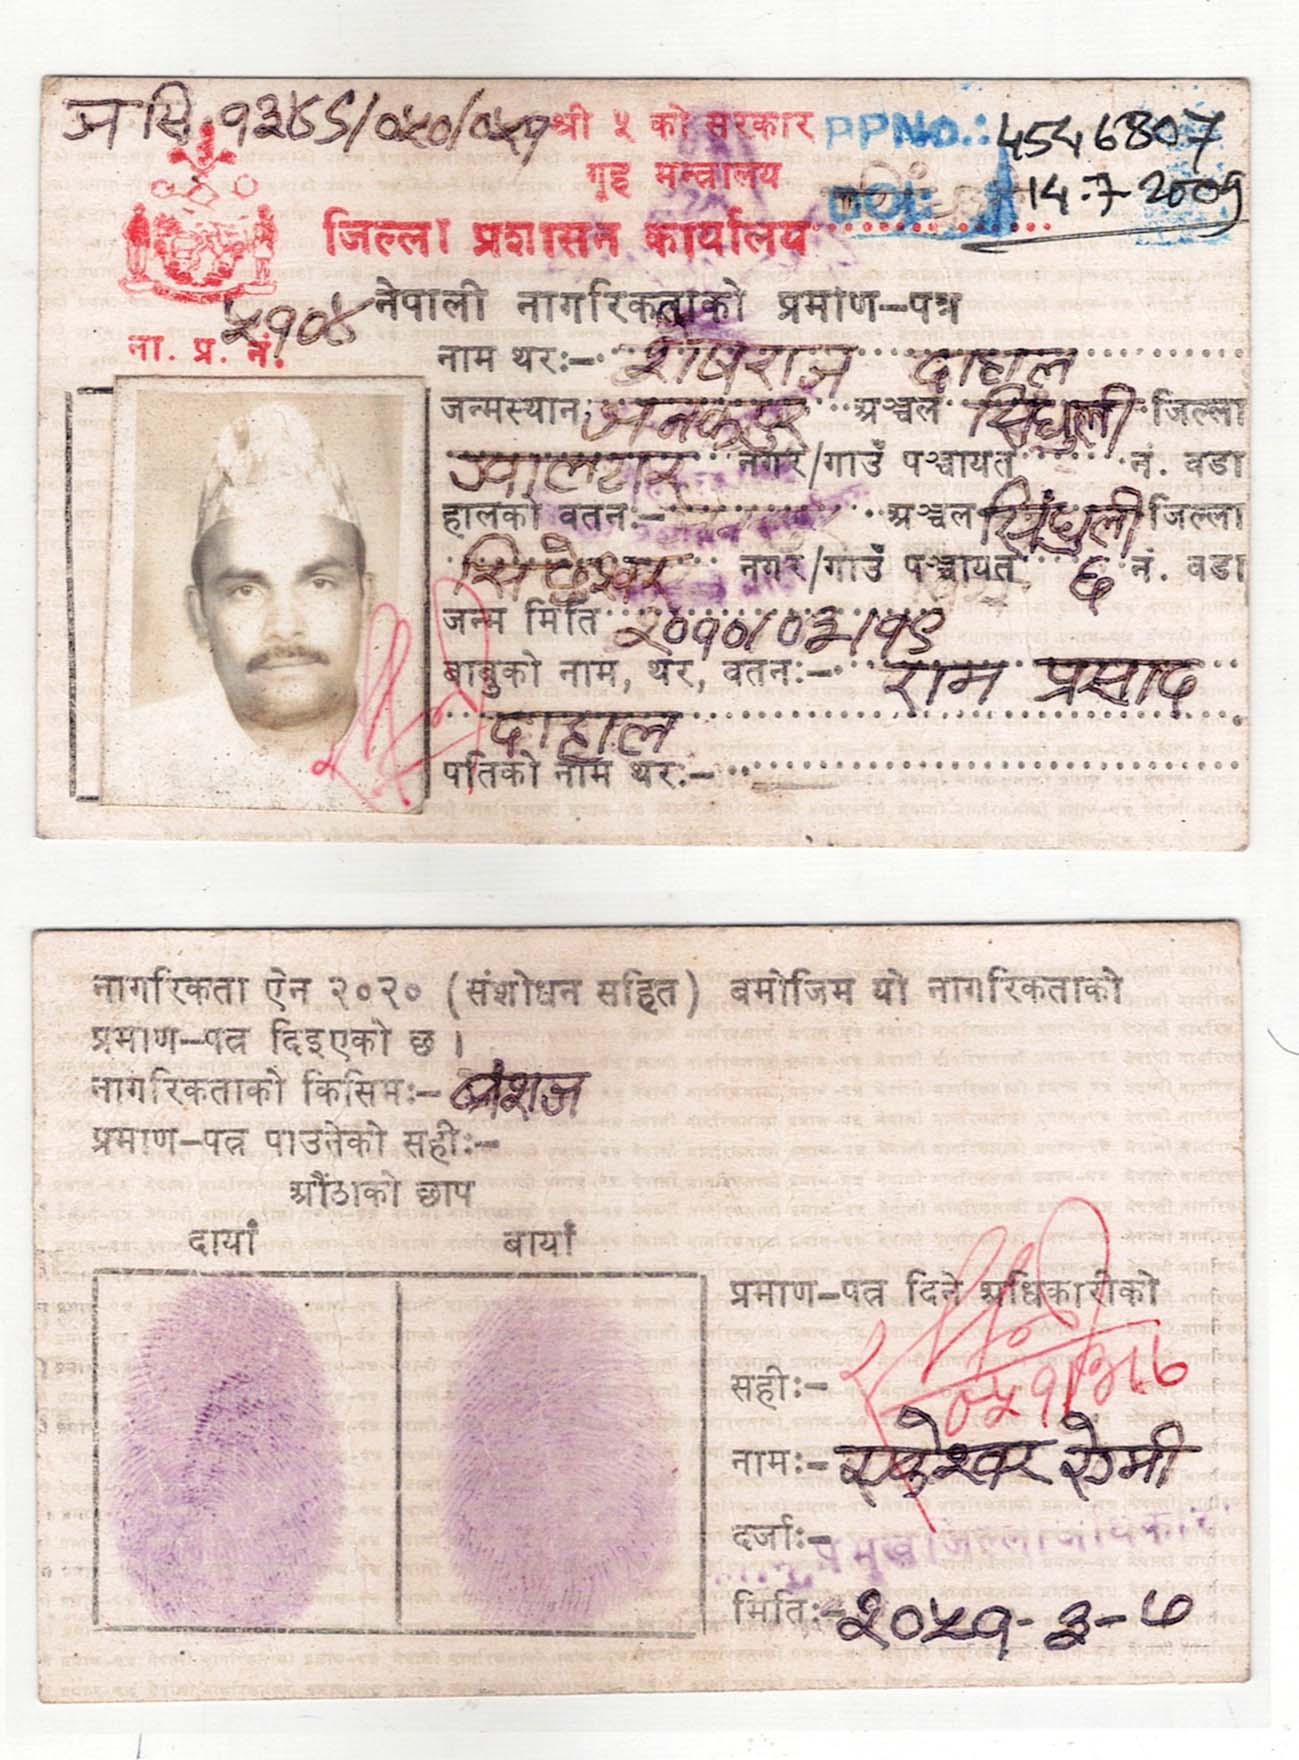 श्री ५ को सरकार
PPNo.: 4546807
गृह मन्त्रालय
DOI: 14.7-2009
जिल्ला प्रशासन कार्यालय
नेपाली नागरिकताको प्रमाण–पत्र
ना. प्र. नं. ५१०४
नाम थरः– शेषराज दाहाल
जन्मस्थानः जनकपुर अञ्चल सिंधुली जिल्ला
ज्वालटार नगर/गाउँ पञ्चायत नं. वडा
हालको वतनः– अञ्चल सिंधुली जिल्ला
नगर/गाउँ पञ्चायत ६ नं. वडा
जन्म मिति २०१०/०३/१९
बाबुको नाम, थर, वतनः– राम प्रसाद
दाहाल
पतिको नाम थरः–
नागरिकता ऐन २०२० (संशोधन सहित) बमोजिम यो नागरिकताको
प्रमाण–पत्र दिइएको छ ।
नागरिकताको किसिमः– वंशज
प्रमाण–पत्र पाउनेको सहीः–
औंठाको छाप
दायाँ बायाँ
प्रमाण–पत्र दिने अधिकारीको
सहीः–
नामः–
दर्जाः– प्रमुख जिल्ला अधिकारी
मितिः– २०५१-३-७